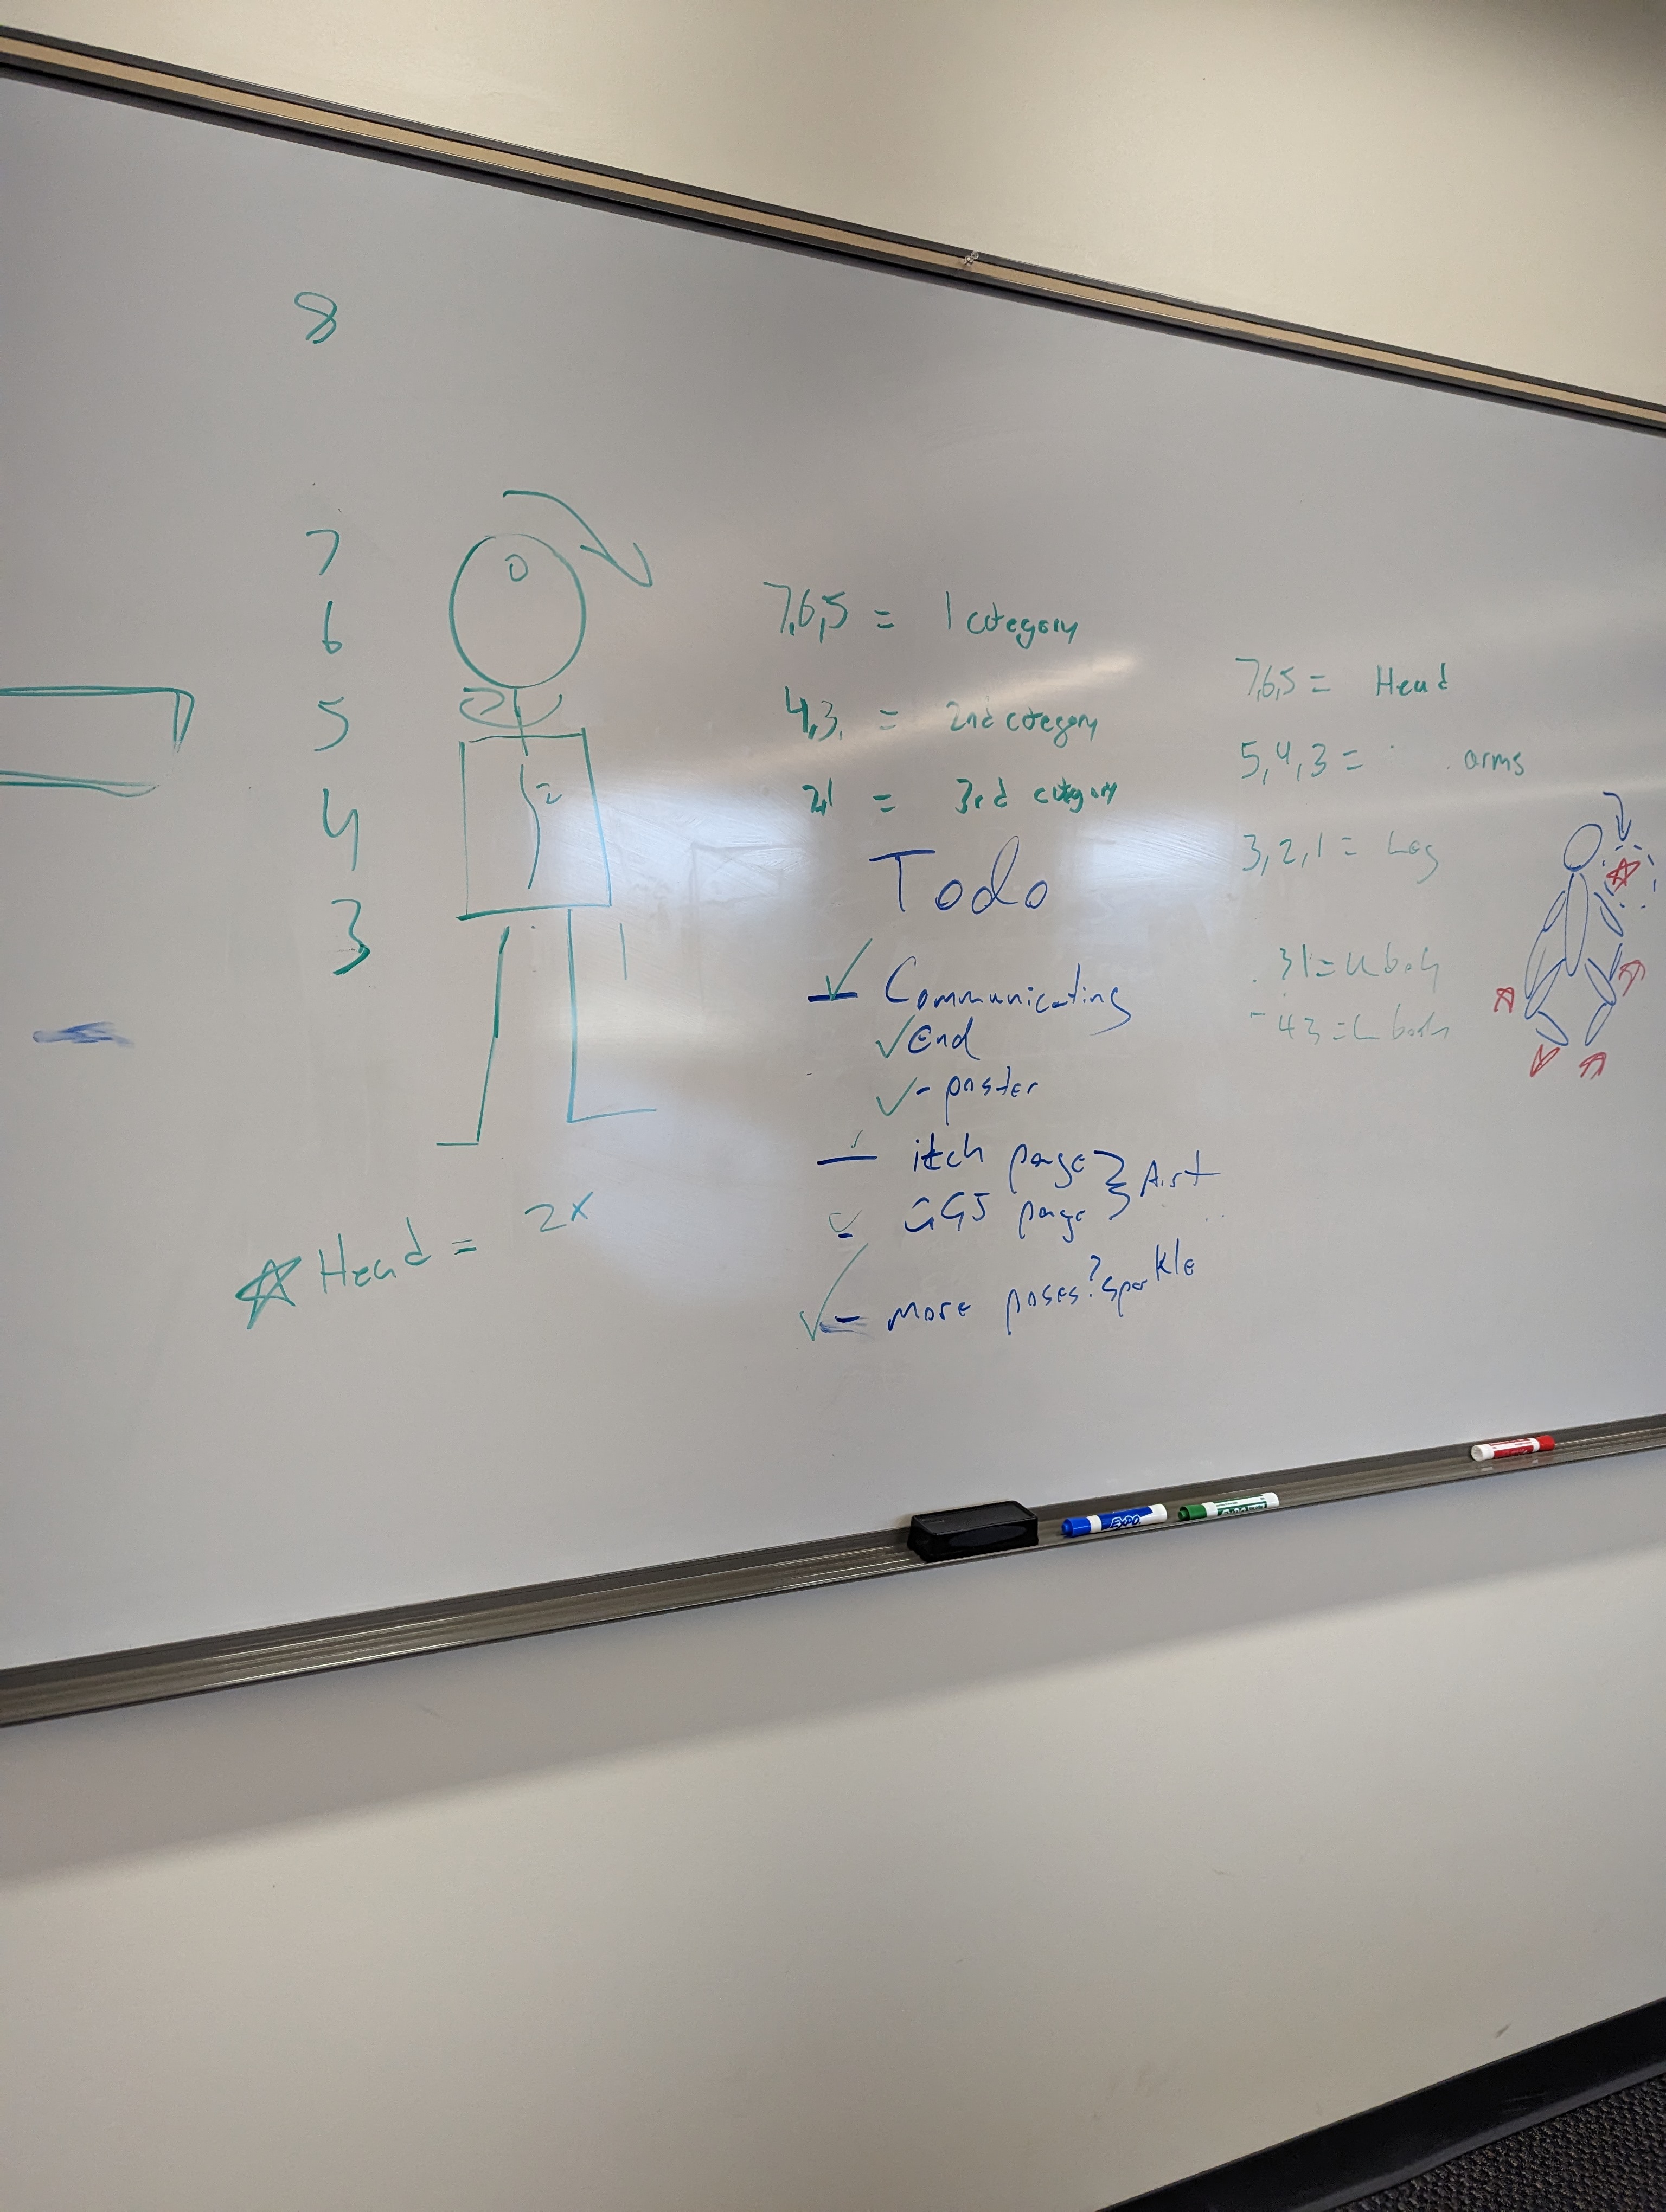 8
7
6
5
4
3
0
2
1
☆ Head = 2x
7,6,5 = 1 category
4,3, = 2nd category
2,1 = 3rd category
Todo
✓ - Communicating
✓ End
✓ - poster
- itch page } Art
- GGJ page
✓ - more poses? sparkle
7,6,5 = Head
5,4,3 = arms
3,2,1 = Leg
EXPO